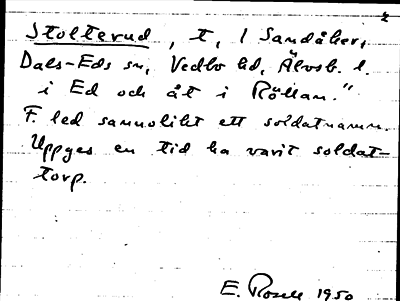 2
Stolterud, t, / Sandåker,
Dals-Eds sn, Vedbo hd, Älvsb. l.
i Ed och åt i Röllan."
F. led sannolikt ett soldatnamn.
Uppges en tid ha varit soldat-
torp.
E. Rosell 1950